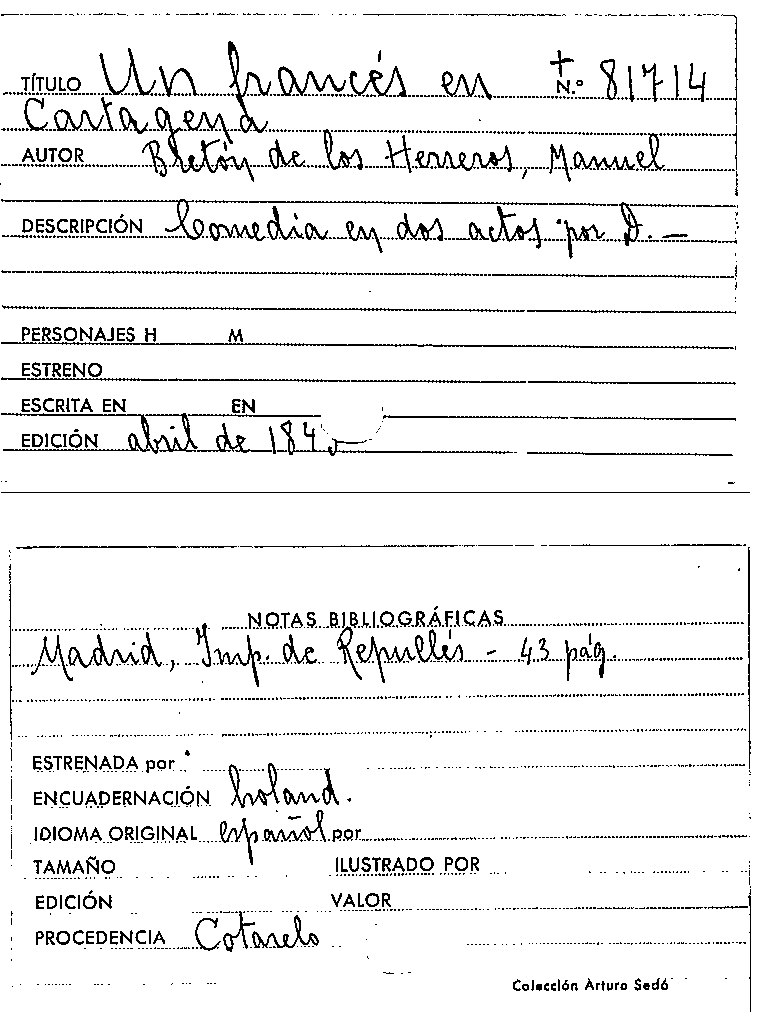 TÍTULO Un francés en + N.º 81714
Cartagena
AUTOR Bretón de los Herreros, Manuel
DESCRIPCIÓN Comedia en dos actos por D. —
PERSONAJES H M
ESTRENO
ESCRITA EN EN
EDICIÓN abril de 184
NOTAS BIBLIOGRÁFICAS
Madrid, Imp. de Repullés - 43 pág.
ESTRENADA por
ENCUADERNACIÓN holand.
IDIOMA ORIGINAL español por
TAMAÑO ILUSTRADO POR
EDICIÓN VALOR
PROCEDENCIA Cotarelo
Colección Arturo Sedó